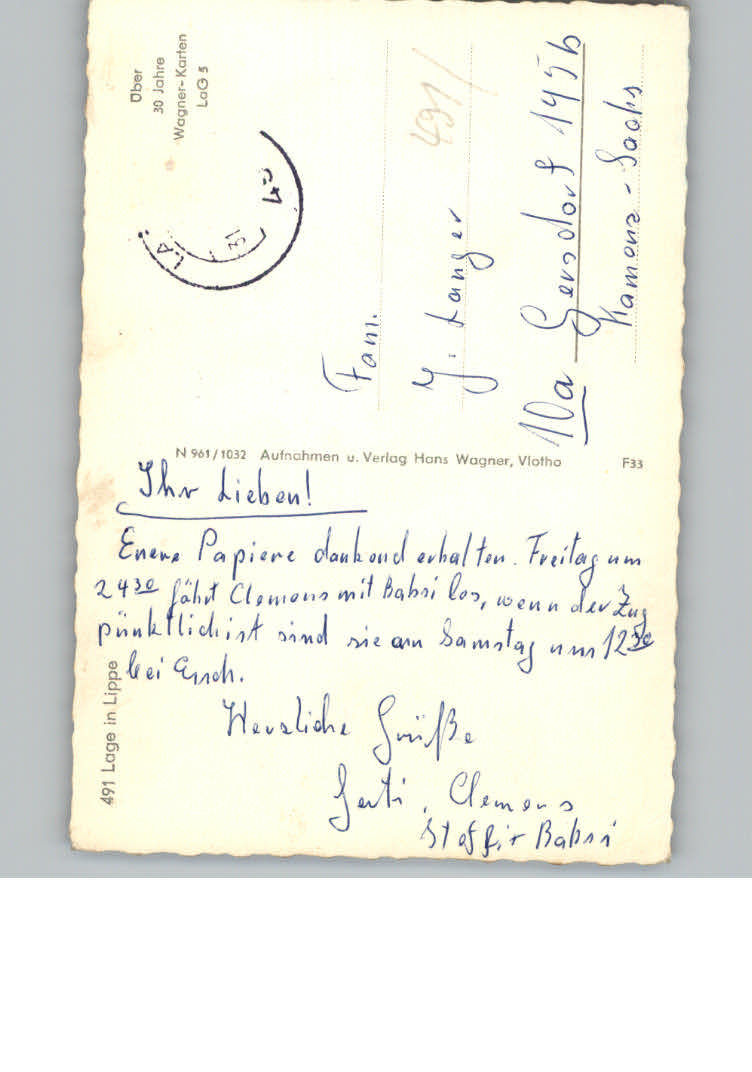 Über
30 Jahre
Wagner-Karten
LaG 5
491
Fam.
J. Langer
10a Gersdorf 145b
Kamenz-Sachs
N 961/1032 Aufnahmen u. Verlag Hans Wagner, Vlotho F33
491 Lage in Lippe
Ihr Lieben!
Euere Papiere dankend erhalten. Freitag um
24 30 fährt Clemens mit Babsi los, wenn der Zug
pünktlich ist sind sie am Samstag um 12 50
bei Euch.
Herzliche Grüße
Gerti, Clemens
Steffi + Babsi